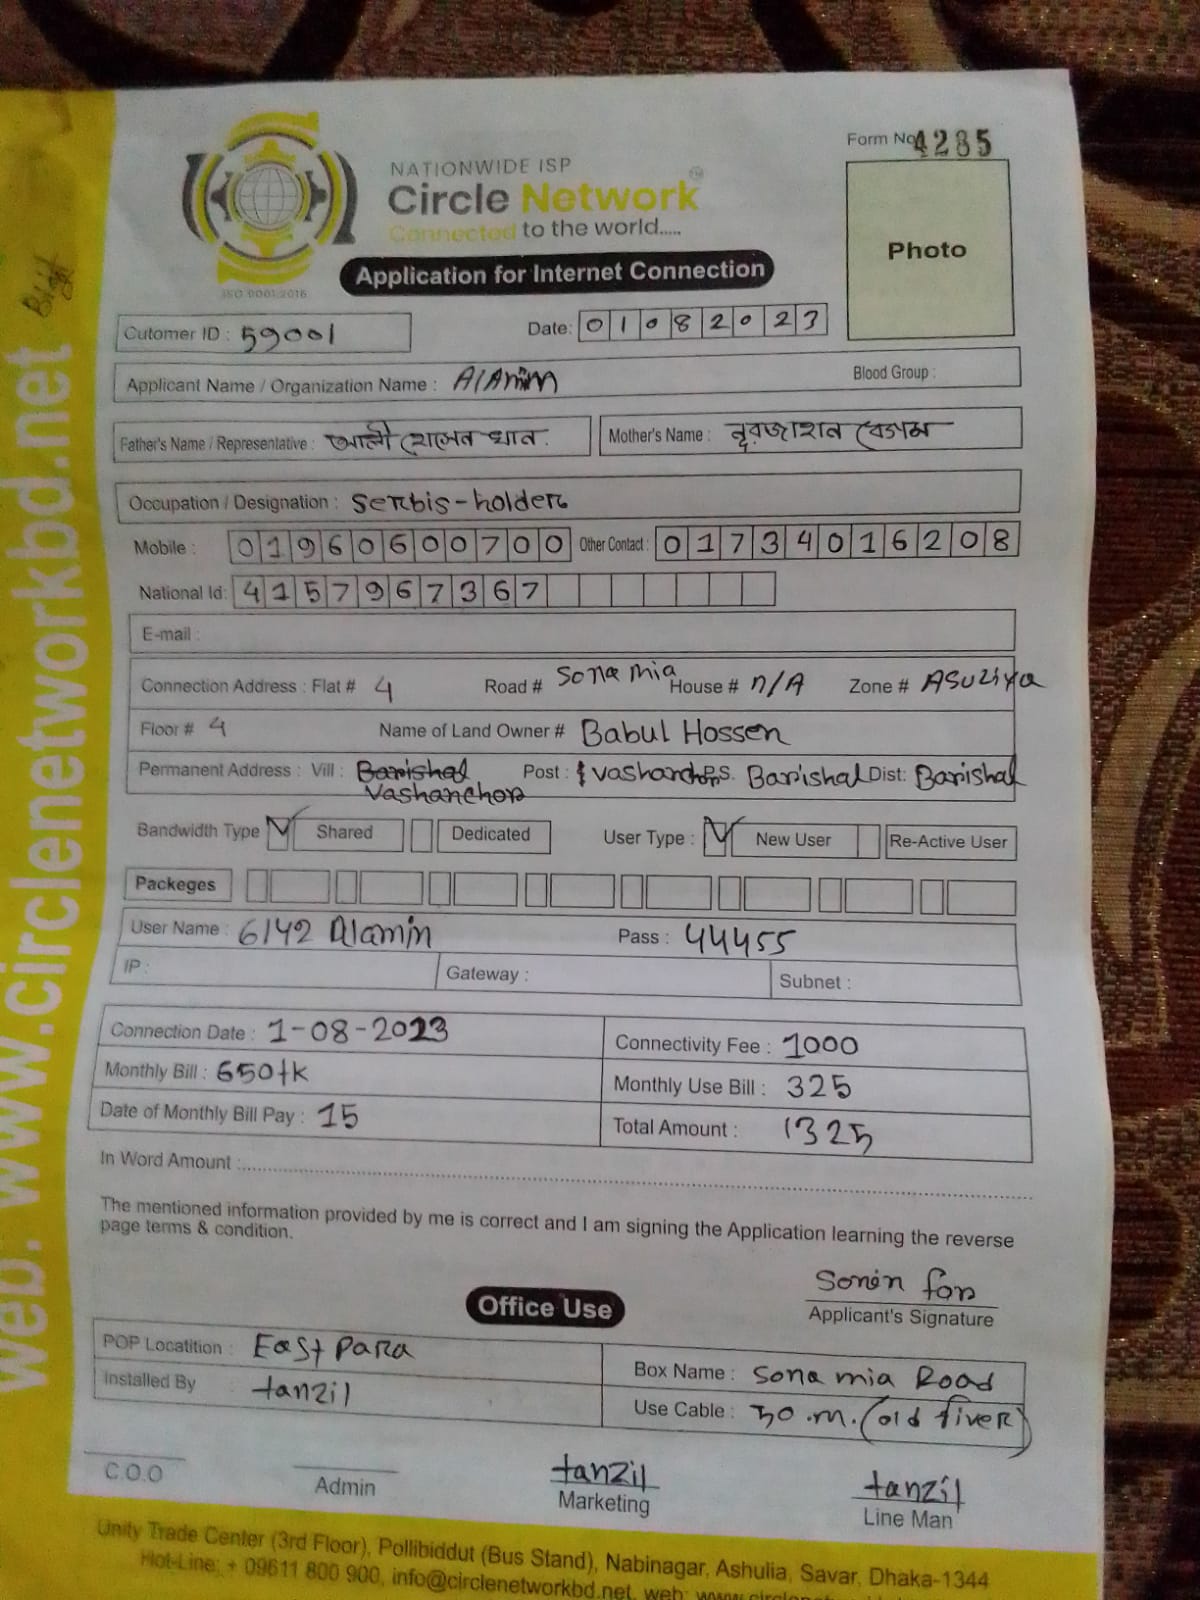 Form No 4285
NATIONWIDE ISP
Circle Network
Connected to the world.....
ISO 9001:2016
Application for Internet Connection
Photo
Cutomer ID : 59001
Date: 01082023
Applicant Name / Organization Name : AlAmin
Blood Group :
Father's Name / Representative : আলী হোসেন খান.
Mother's Name : নূরজাহান বেগম
Occupation / Designation : Serbis-holder
Mobile : 01960600700 Other Contact : 01734016208
National Id: 4157967367
E-mail :
Connection Address : Flat # 4 Road # Sona mia House # n/A Zone # ASuliya
Floor # 4 Name of Land Owner # Babul Hossen
Permanent Address : Vill : Barishal Post : Vashanchor P.S. Barishal Dist: Barishal
Vashanchor
Bandwidth Type Shared Dedicated User Type : New User Re-Active User
Packeges
User Name : 6142 Alamin Pass : 44455
IP : Gateway : Subnet :
Connection Date : 1-08-2023 Connectivity Fee : 1000
Monthly Bill : 650tk Monthly Use Bill : 325
Date of Monthly Bill Pay : 15 Total Amount : 1325
In Word Amount :
The mentioned information provided by me is correct and I am signing the Application learning the reverse
page terms & condition.
Applicant's Signature
Office Use
POP Locatition : East Para
Box Name : Sona mia Road
Installed By tanzil
Use Cable : 30.m.(old fiver)
C.O.O
Admin
tanzil
Marketing
tanzil
Line Man
Unity Trade Center (3rd Floor), Pollibiddut (Bus Stand), Nabinagar, Ashulia, Savar, Dhaka-1344
Hot-Line: + 09611 800 900, info@circlenetworkbd.net, web:
web: www.circlenetworkbd.net